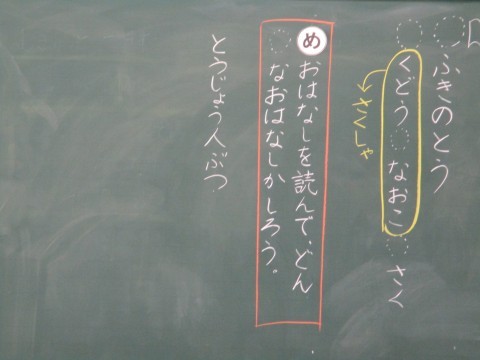 ふきのとう
くどう なおこ さく
さくしゃ
め おはなしを読んで、どん
なおはなしかしろう。
とうじょう人ぶつ